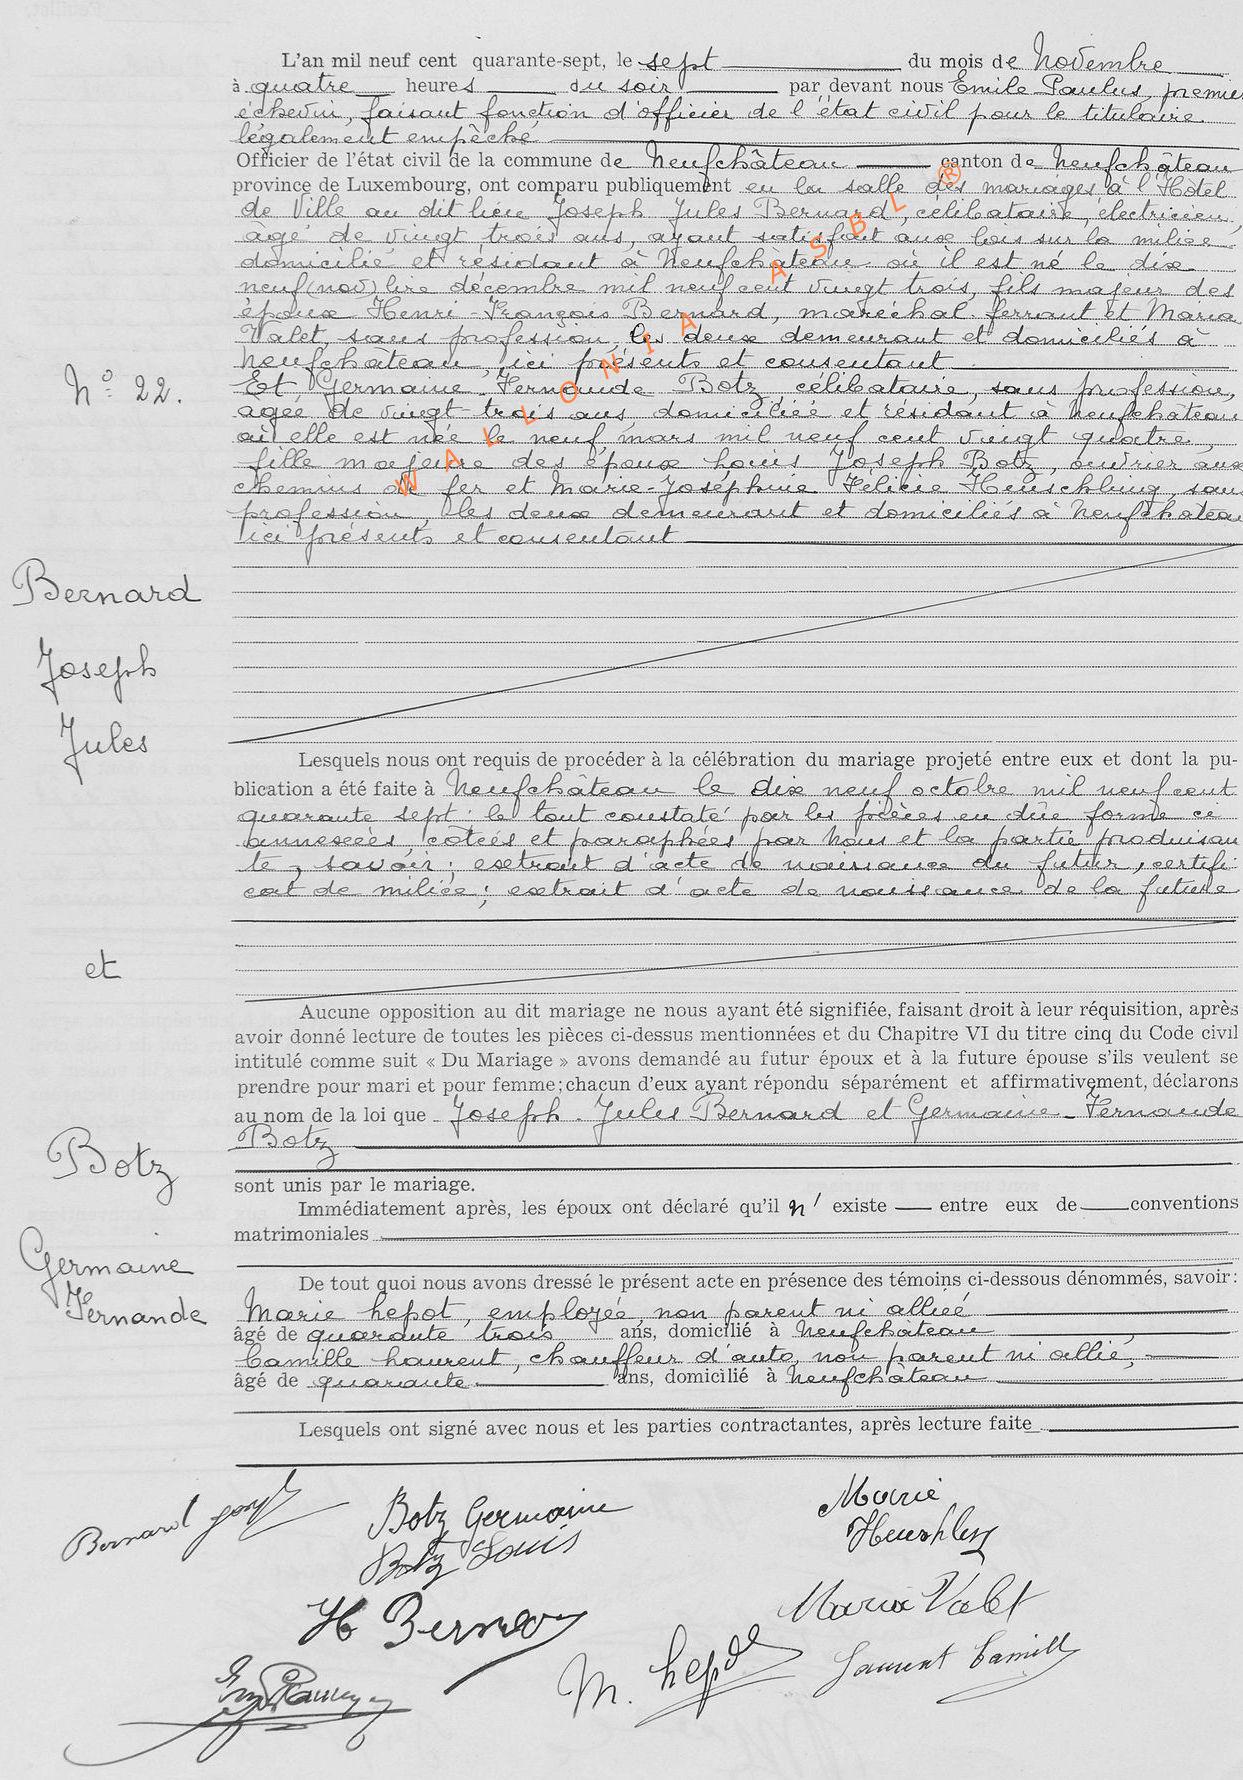 L'an mil neuf cent quarante-sept, le sept du mois de Novembre
à quatre heures du soir par devant nous Emile Paulus, premier
échevin, faisant fonction d'officier de l'état civil pour le titulaire
légalement empêché
Officier de l'état civil de la commune de Neufchâteau canton de Neufchâteau
province de Luxembourg, ont comparu publiquement en la salle des mariages à l'Hôtel
de Ville au dit lieu Joseph Jules Bernard, célibataire, électricien,
âgé de vingt trois ans, ayant satisfait aux lois sur la milice
domicilié et résidant à Neufchâteau où il est né le dix
neuf (nov) bre décembre mil neuf cent vingt trois, fils majeur des
époux Henri-François Bernard, maréchal-ferrant et Maria
Valet, sans profession, les deux demeurant et domiciliés à
Neufchâteau, ici présents et consentant
Nº 22.
Et Germaine Fernande Botz, célibataire, sans profession,
agée de vingt-trois ans, domiciliée et résidant à Neufchâteau
où elle est née le neuf mars mil neuf cent vingt quatre,
fille majeure des époux Louis Joseph Botz, ouvrier aux
chemins de fer et Marie-Joséphine Félicie Heuschling, sans
profession, les deux demeurant et domiciliés à Neufchâteau
ici présents et consentant
WALLONIA ASBL ®
Bernard
Joseph
Jules
Lesquels nous ont requis de procéder à la célébration du mariage projeté entre eux et dont la pu-
blication a été faite à Neufchâteau le dix neuf octobre mil neuf cent
quarante sept; le tout constaté par les pièces en dûe forme ci
annexées, côtées et paraphées par Nous et la partie produisan
te, savoir; extrait d'acte de naissance du futur, certifi
cat de milice; extrait d'acte de naissance de la future
et
Aucune opposition au dit mariage ne nous ayant été signifiée, faisant droit à leur réquisition, après
avoir donné lecture de toutes les pièces ci-dessus mentionnées et du Chapitre VI du titre cinq du Code civil
intitulé comme suit « Du Mariage » avons demandé au futur époux et à la future épouse s'ils veulent se
prendre pour mari et pour femme; chacun d'eux ayant répondu séparément et affirmativement, déclarons
au nom de la loi que Joseph-Jules Bernard et Germaine-Fernande
Botz
Botz
sont unis par le mariage.
Immédiatement après, les époux ont déclaré qu'il n' existe entre eux de conventions
matrimoniales
Germaine
Fernande
De tout quoi nous avons dressé le présent acte en présence des témoins ci-dessous dénommés, savoir:
Marie Lepot, employée, non parent ni alliée
âgé de quarante trois ans, domicilié à Neufchâteau
Camille Laurent, chauffeur d'auto, non parent ni allié,
âgé de quarante ans, domicilié à Neufchâteau
Lesquels ont signé avec nous et les parties contractantes, après lecture faite
Bernard Joseph
Botz Germaine
Marie
Heuschling
Botz Louis
H Bernard
Maria Valet
M. Lepot
Laurent Camille